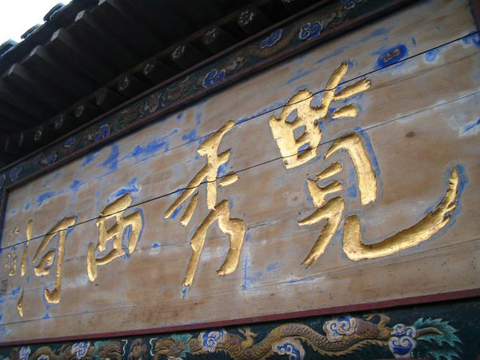 覽秀西河